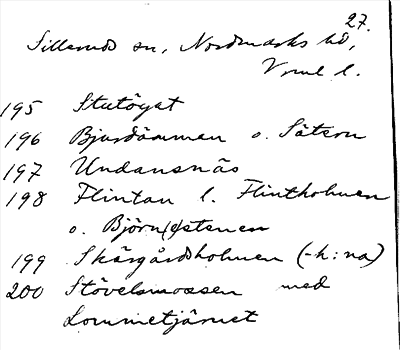 27.
Sillerud sn, Nordmarks hd,
Vrml l.
195 Stutöget
196 Bjurdammen o. Sätern
197 Undansnäs
198 Flintan l. Flintholmen
o. Björn(e)stenen
199 Skärgårdsholmen (-h:na)
200 Stövelsmossen med
Lommetjärnet